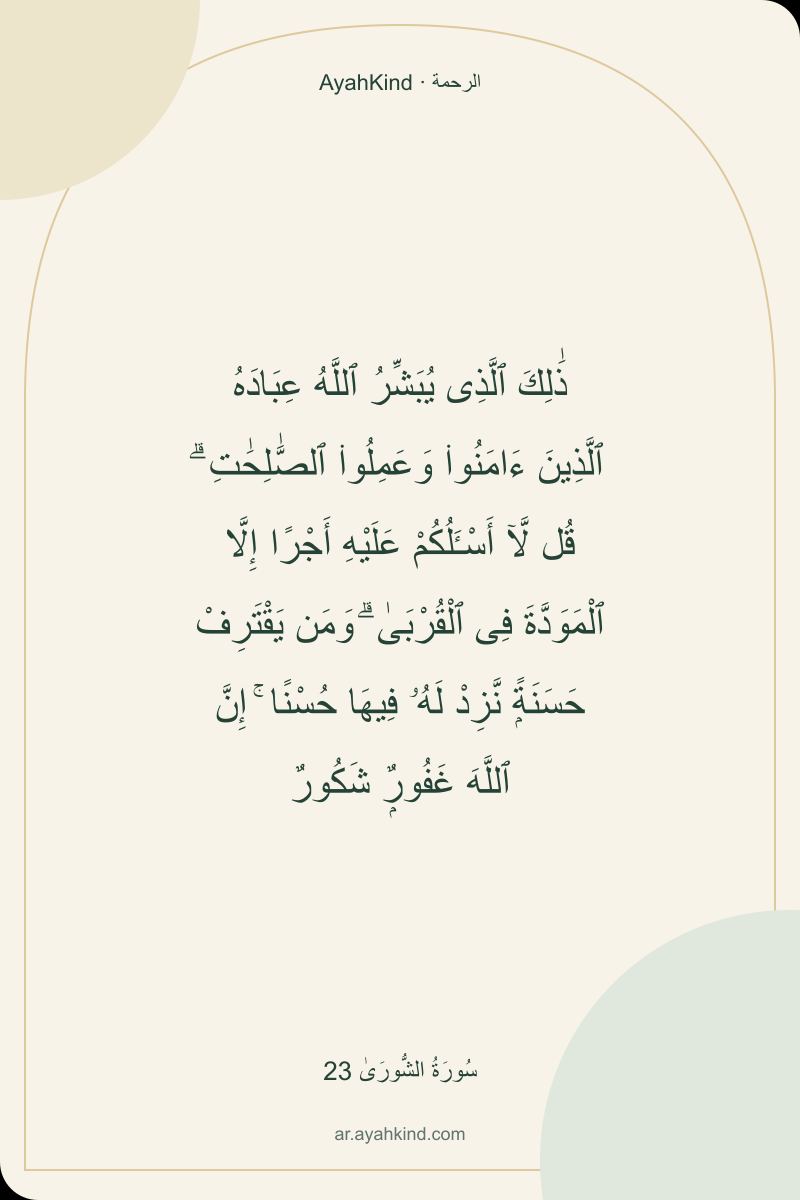 AyahKind · الرحمة
ذَٰلِكَ ٱلَّذِى يُبَشِّرُ ٱللَّهُ عِبَادَهُ
ٱلَّذِينَ ءَامَنُوا۟ وَعَمِلُوا۟ ٱلصَّٰلِحَٰتِ ۗ
قُل لَّآ أَسْـَٔلُكُمْ عَلَيْهِ أَجْرًا إِلَّا
ٱلْمَوَدَّةَ فِى ٱلْقُرْبَىٰ ۗ وَمَن يَقْتَرِفْ
حَسَنَةًۭ نَّزِدْ لَهُۥ فِيهَا حُسْنًا ۚ إِنَّ
ٱللَّهَ غَفُورٌۭ شَكُورٌ
سُورَةُ الشُّورَىٰ 23
ar.ayahkind.com